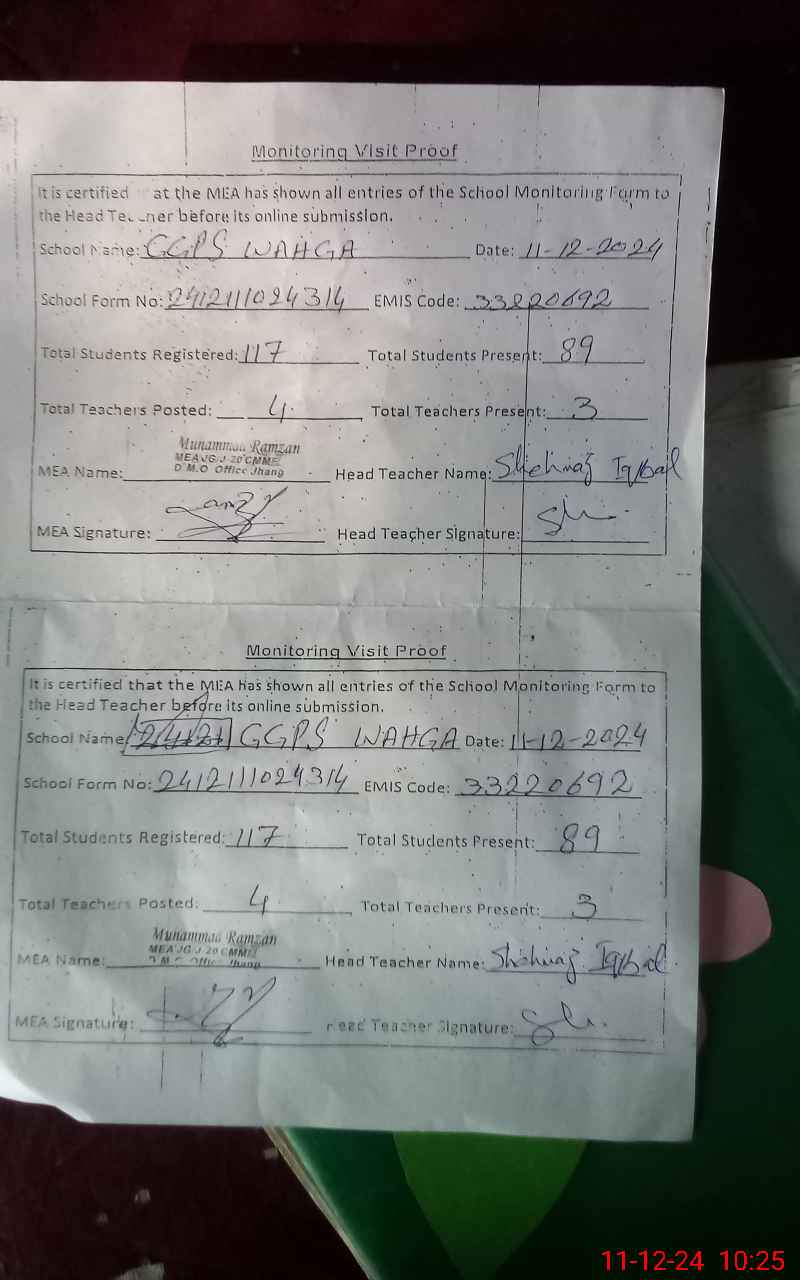 Monitoring Visit Proof
It is certified at the MEA has shown all entries of the School Monitoring Form to
the Head Teacher before its online submission.
School Name: GGPS WAHGA Date: 11-12-2024
School Form No: 2412111024314 EMIS Code: 33220692
Total Students Registered: 117 Total Students Present: 89
Total Teachers Posted: 4 Total Teachers Present: 3
Muhammad Ramzan
MEA JG J-20 CMMF
D.M.O Office Jhang
MEA Name: Head Teacher Name: Shehnaz Iqbal
MEA Signature: Head Teacher Signature:
Monitoring Visit Proof
It is certified that the MEA has shown all entries of the School Monitoring Form to
the Head Teacher before its online submission.
School Name GGPS WAHGA Date: 11-12-2024
School Form No: 2412111024314 EMIS Code: 33220692
Total Students Registered: 117 Total Students Present: 89
Total Teachers Posted: 4 Total Teachers Present: 3
Muhammad Ramzan
MEA JG J-20 CMMF
D.M.O Office Jhang
MEA Name: Head Teacher Name: Shehnaz Iqbal
MEA Signature: Head Teacher Signature:
11-12-24 10:25